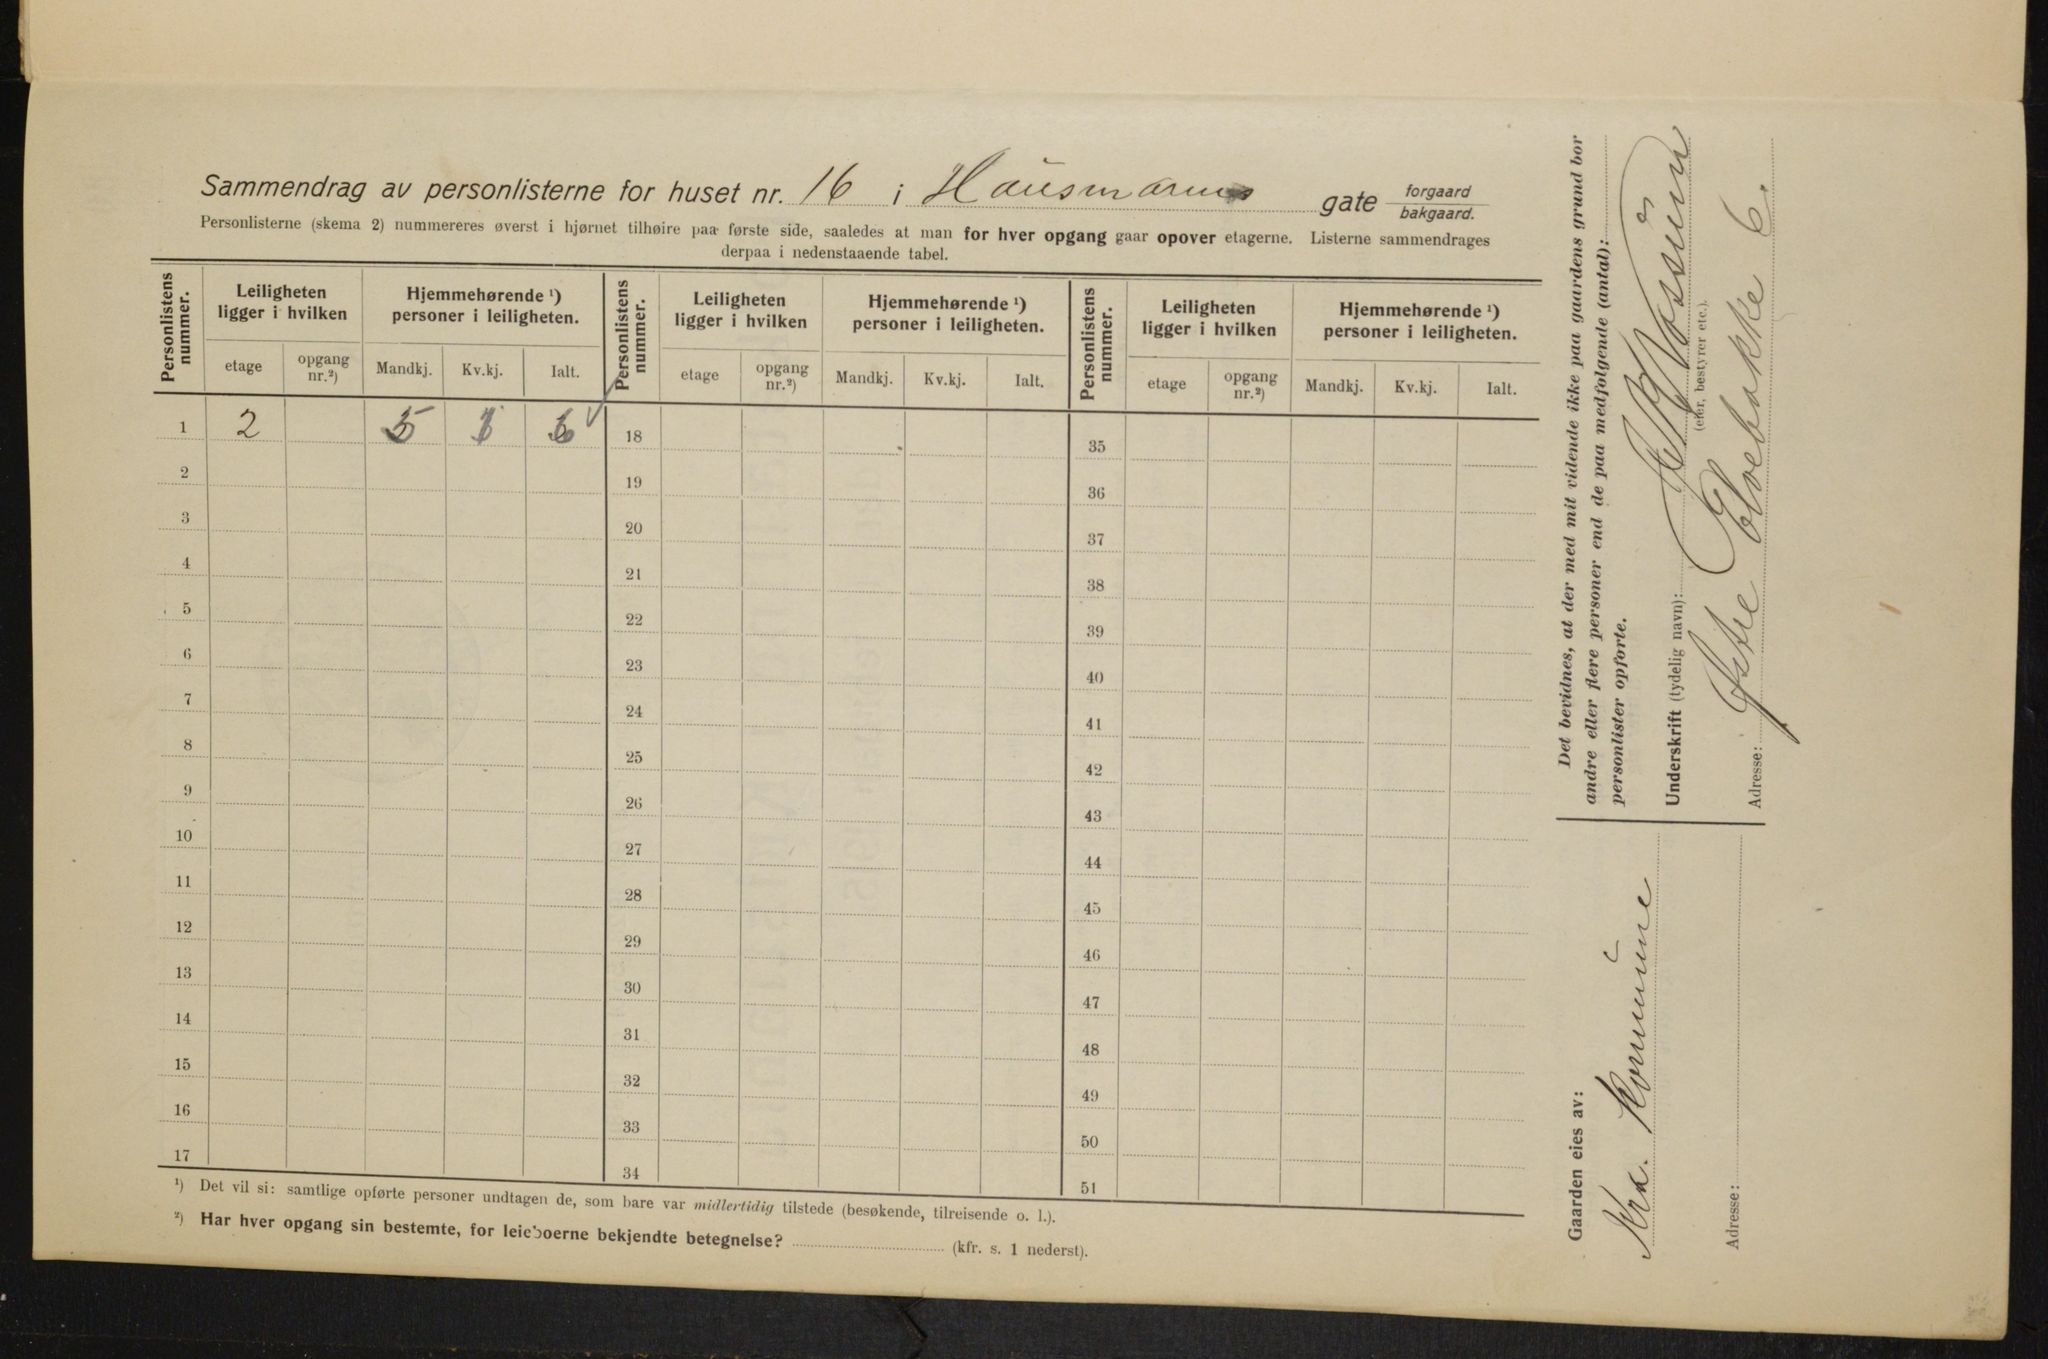 Sammendrag av personlisterne for huset nr. 16 i Hausmanns gate forgaard bakgaard.
Personlisterne (skema 2) nummereres øverst i hjørnet tilhøire paa første side, saaledes at man for hver opgang gaar opover etagerne. Listerne sammendrages
derpaa i nedenstaaende tabel.
Personlistens nummer. Leiligheten ligger i hvilken Hjemmehørende ¹) personer i leiligheten. Personlistens nummer. Leiligheten ligger i hvilken Hjemmehørende ¹) personer i leiligheten. Personlistens nummer. Leiligheten ligger i hvilken Hjemmehørende ¹) personer i leiligheten.
etage opgang nr.²) Mandkj. Kv.kj. Ialt. etage opgang nr.²) Mandkj. Kv.kj. Ialt. etage opgang nr.²) Mandkj. Kv.kj. Ialt.
1 2 5 1 6 18 35
2 19 36
3 20 37
4 21 38
5 22 39
6 23 40
7 24 41
8 25 42
9 26 43
10 27 44
11 28 45
12 29 46
13 30 47
14 31 48
15 32 49
16 33 50
17 34 51
¹) Det vil si: samtlige opførte personer undtagen de, som bare var midlertidig tilstede (besøkende, tilreisende o. l.).
²) Har hver opgang sin bestemte, for leieboerne bekjendte betegnelse? (kfr. s. 1 nederst).
Det bevidnes, at der med mit vidende ikke paa gaardens grund bor
andre eller flere personer end de paa medfølgende (antal):
personlister opførte.
Underskrift (tydelig navn):
(eier, bestyrer etc.).
Adresse: Østre Elvebakke 6.
Gaarden eies av:
Kra. Kommune
Adresse: